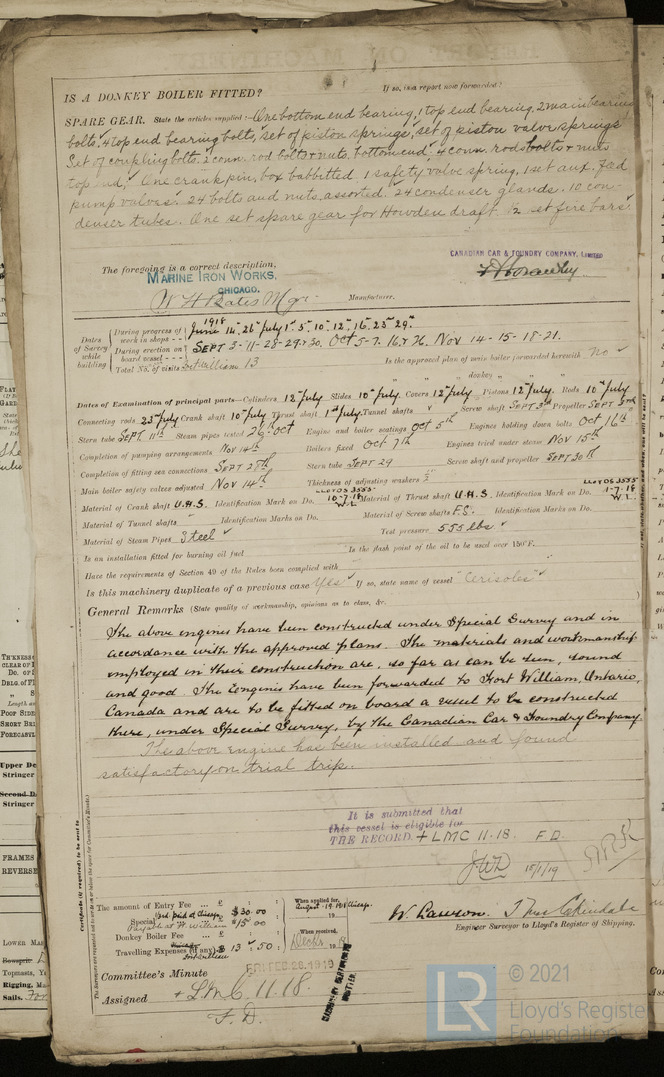 IS A DONKEY BOILER FITTED? If so, is a report now forwarded?
SPARE GEAR. State the articles supplied:— One bottom end bearing, 1 top end bearing, 2 main bearing
bolts, 4 top end bearing bolts, set of piston springs, set of piston valve springs
Set of coupling bolts. 2 conn. rod bolts & nuts. bottom end, 4 conn. rods bolts & nuts
top end, One crank pin, box babbetted. 1 safety valve spring, 1 set aux. feed
pump valves. 24 bolts and nuts, assorted. 24 condenser glands. 10 con-
denser tubes. One set spare gear for Howden draft. 2 set fire bars.
CANADIAN CAR & FOUNDRY COMPANY, LIMITED
The foregoing is a correct description,
MARINE IRON WORKS.
CHICAGO.
W H Bates Mgr. Manufacturer.
1918
Dates of Survey while building
During progress of work in shops - - June 14. 26 July 1st 5. 10. 12. 16. 23 29.
During erection on board vessel - - - SEPT 3-11-28-29 & 30. Oct 5-7. 16 & 26. Nov 14-15-18-21.
Total No. of visits Fort William 13 Is the approved plan of main boiler forwarded herewith No
" " " donkey " " "
Dates of Examination of principal parts—Cylinders 12th July Slides 10th July Covers 12th July Pistons 12th July Rods 10th July
Connecting rods 23rd July Crank shaft 10th July Thrust shaft 1st July Tunnel shafts Screw shaft SEPT 3rd Propeller SEPT 3rd
Stern tube SEPT 11th Steam pipes tested 26th Oct Engine and boiler seatings Oct 5th Engines holding down bolts Oct 16th
Completion of pumping arrangements Nov 14th Boilers fixed Oct 7th Engines tried under steam Nov 15th
Completion of fitting sea connections SEPT 28th Stern tube SEPT 29 Screw shaft and propeller SEPT 30th
Main boiler safety valves adjusted Nov 14th Thickness of adjusting washers
LLOYDS 3555 LLOYDS 3555
Material of Crank shaft U.H.S. Identification Mark on Do. 10-7-18 W.L. Material of Thrust shaft U.H.S. Identification Mark on Do. 1-7-18 W.L.
Material of Tunnel shafts Identification Marks on Do. Material of Screw shafts F.S. Identification Marks on Do.
Material of Steam Pipes Steel Test pressure 555 lbs
Is an installation fitted for burning oil fuel Is the flash point of the oil to be used over 150°F.
Have the requirements of Section 49 of the Rules been complied with
Is this machinery duplicate of a previous case Yes If so, state name of vessel "Cerisoles"
General Remarks (State quality of workmanship, opinions as to class, &c.
The above engines have been constructed under Special Survey and in
accordance with the approved plans. The materials and workmanship
employed in their construction are, so far as can be seen, sound
and good. The Engines have been forwarded to Fort William, Ontario,
Canada and are to be fitted on board a vessel to be constructed
there, under Special Survey, by the Canadian Car & Foundry Company.
The above engine has been installed and found
satisfactory on trial trip.
It is submitted that
this vessel is eligible for
THE RECORD. + LMC 11.18. F.D.
15/1/19
The amount of Entry Fee ... £ : :
Special 3rd paid at Chicago $30.00
Payable at Ft William $15.00
Donkey Boiler Fee ... £ : :
Travelling Expenses (if any) $ 13 : 50 :
Chicago
Fort William
When applied for, August 19. 1918 Chicago.
When received,
W. Lawson.
Engineer Surveyor to Lloyd's Register of Shipping.
Committee's Minute FRI. FEB. 28. 1919
Assigned + LMC 11.18.
F. D.
MACHINERY CERTIFICATE
WRITTEN.
LR
© 2021
Lloyd's Registe
Foundation